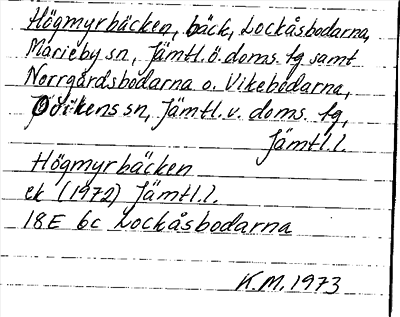 Högmyrbäcken, bäck, Lockåsbodarna,
Marieby sn, Jämtl. ö. doms. fg samt
Norrgårdsbodarna o. Vikebodarna,
Ovikens sn, Jämtl. v. doms. fg,
Jämtl. l.
Högmyrbäcken
ek (1972) Jämtl. l.
18E 6c Lockåsbodarna
K.M. 1973